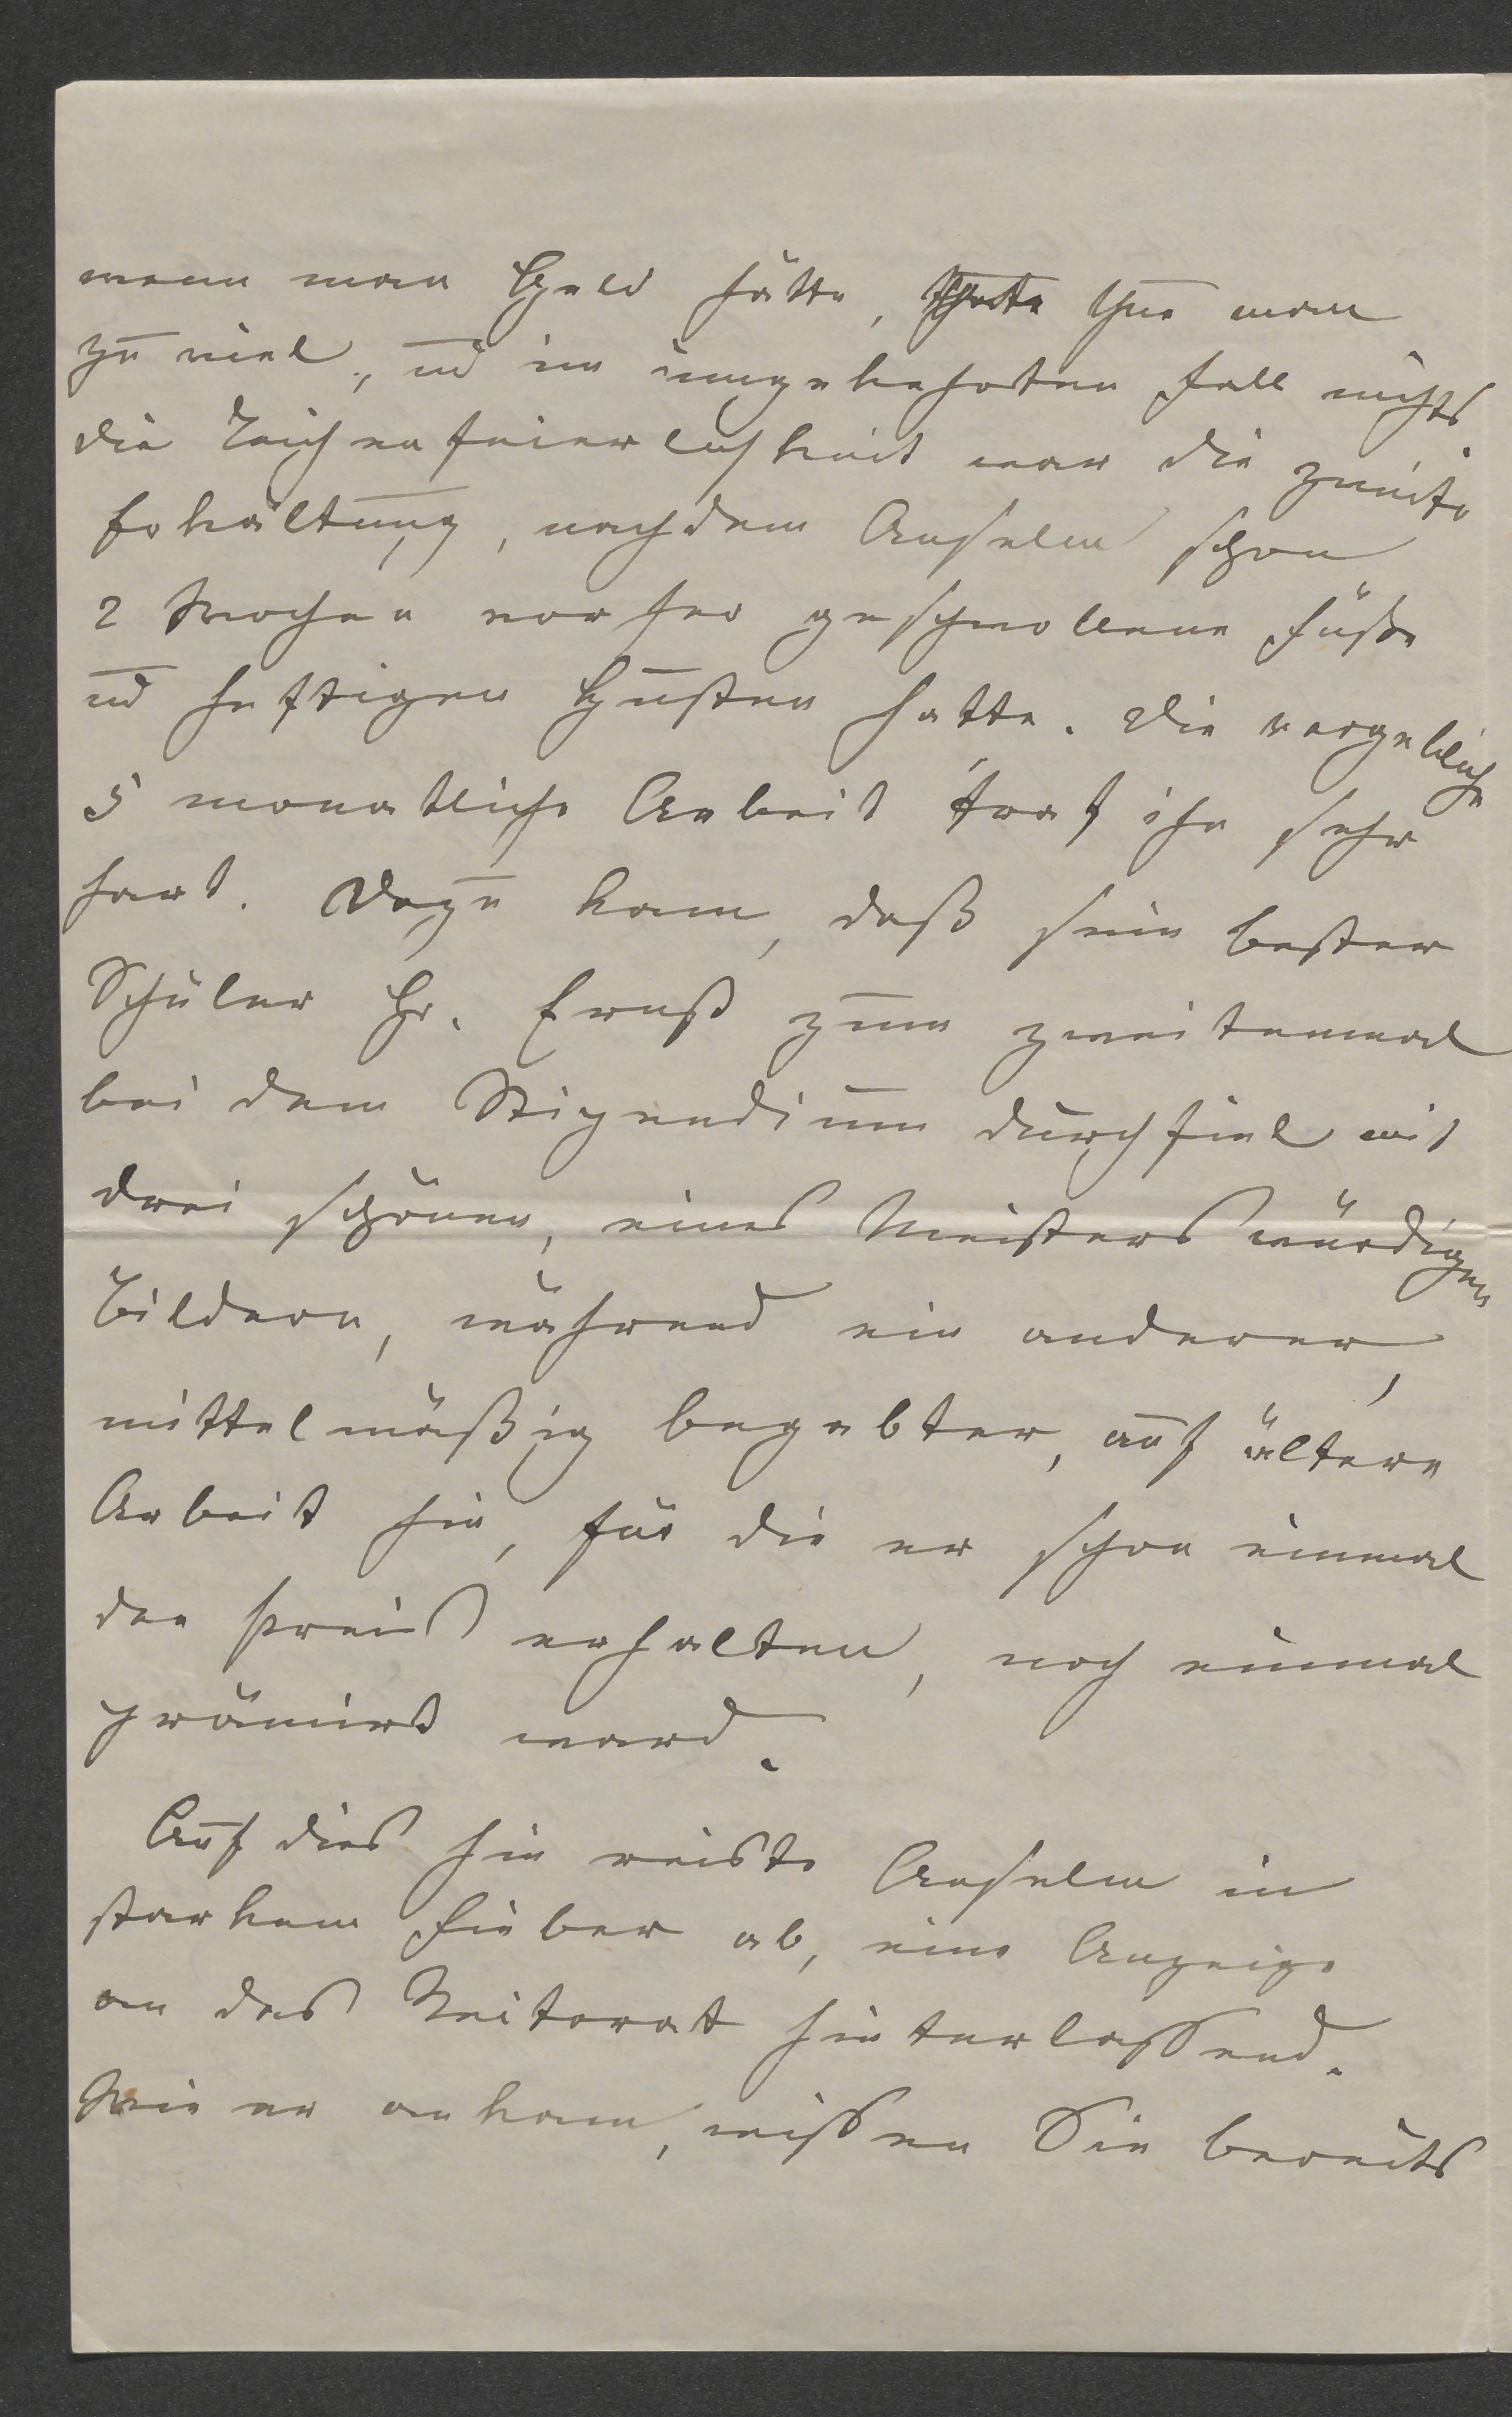 wenn man Geld hätte, thue man
zu viel, ud im umgekehrten Fall nichts.
Die Leichenfeierlichkeit war die zweite
Erkältung, nachdem Anselm schon
2 Wochen vorher geschwollene Füße
ud heftigen Husten hatte. Die vergebliche
5 monatliche Arbeit traf ihn sehr
hart. Dazu kam, daß sein bester
Schüler Hr. Ernst zum zweitenmal
bei dem Stipendium durchfiel mit
drei schönen, eines Meisters würdigen
Bildern, während ein anderer,
mittelmäßig begabter, auf ältere
Arbeit hin, für die er schon einmal
den Preis erhalten, noch einmal
prämirt ward.
Auf dies hin reiste Anselm in
starkem Fieber ab, eine Anzeige
an das hinterlassend.
Wie er ankam, wissen Sie bereits